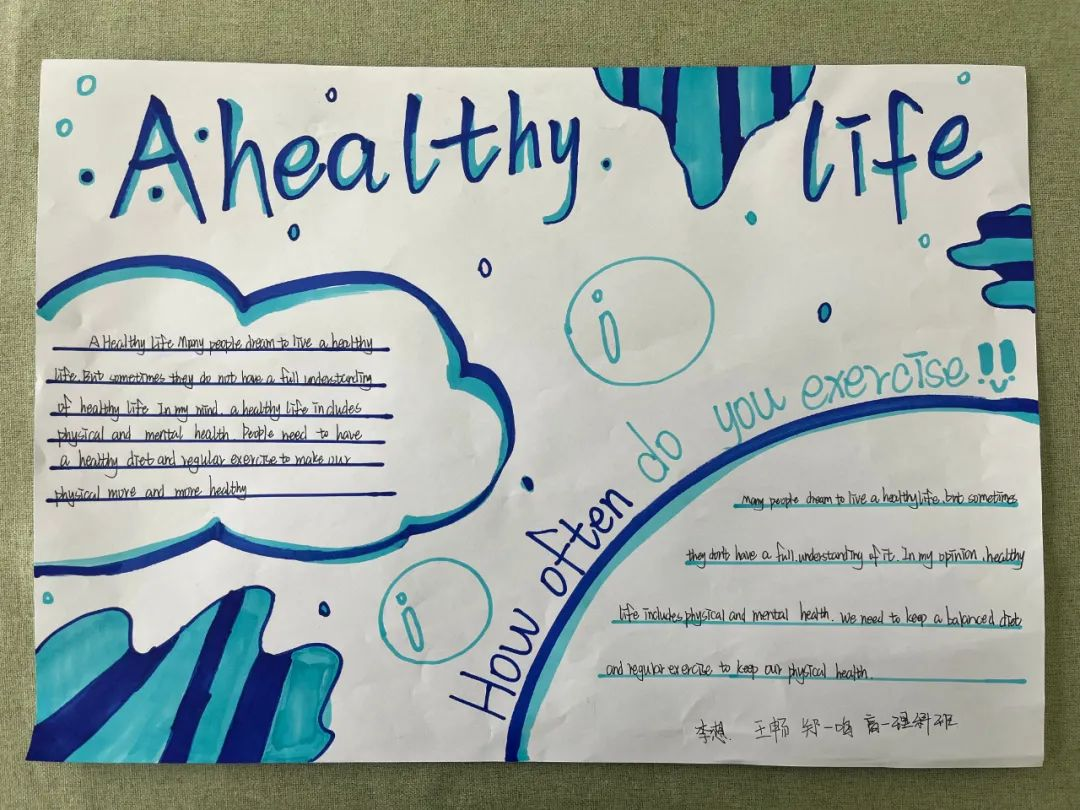 A healthy life
A Healthy Life Many people dream to live a healthy
life. But sometimes they do not have a full understanding
of healthy life In my mind, a healthy life includes
physical and mental health. People need to have
a healthy diet and regular exercise to make our
physical more and more healthy
How often do you exercise!!
Many people dream to live a healthy life, but sometimes
they don't have a full understanding of it. In my opinion, healthy
life includes physical and mental health. We need to keep a balanced diet
and regular exercise to keep our physical health.
李想 王畅 郑一鸣 高一理科班